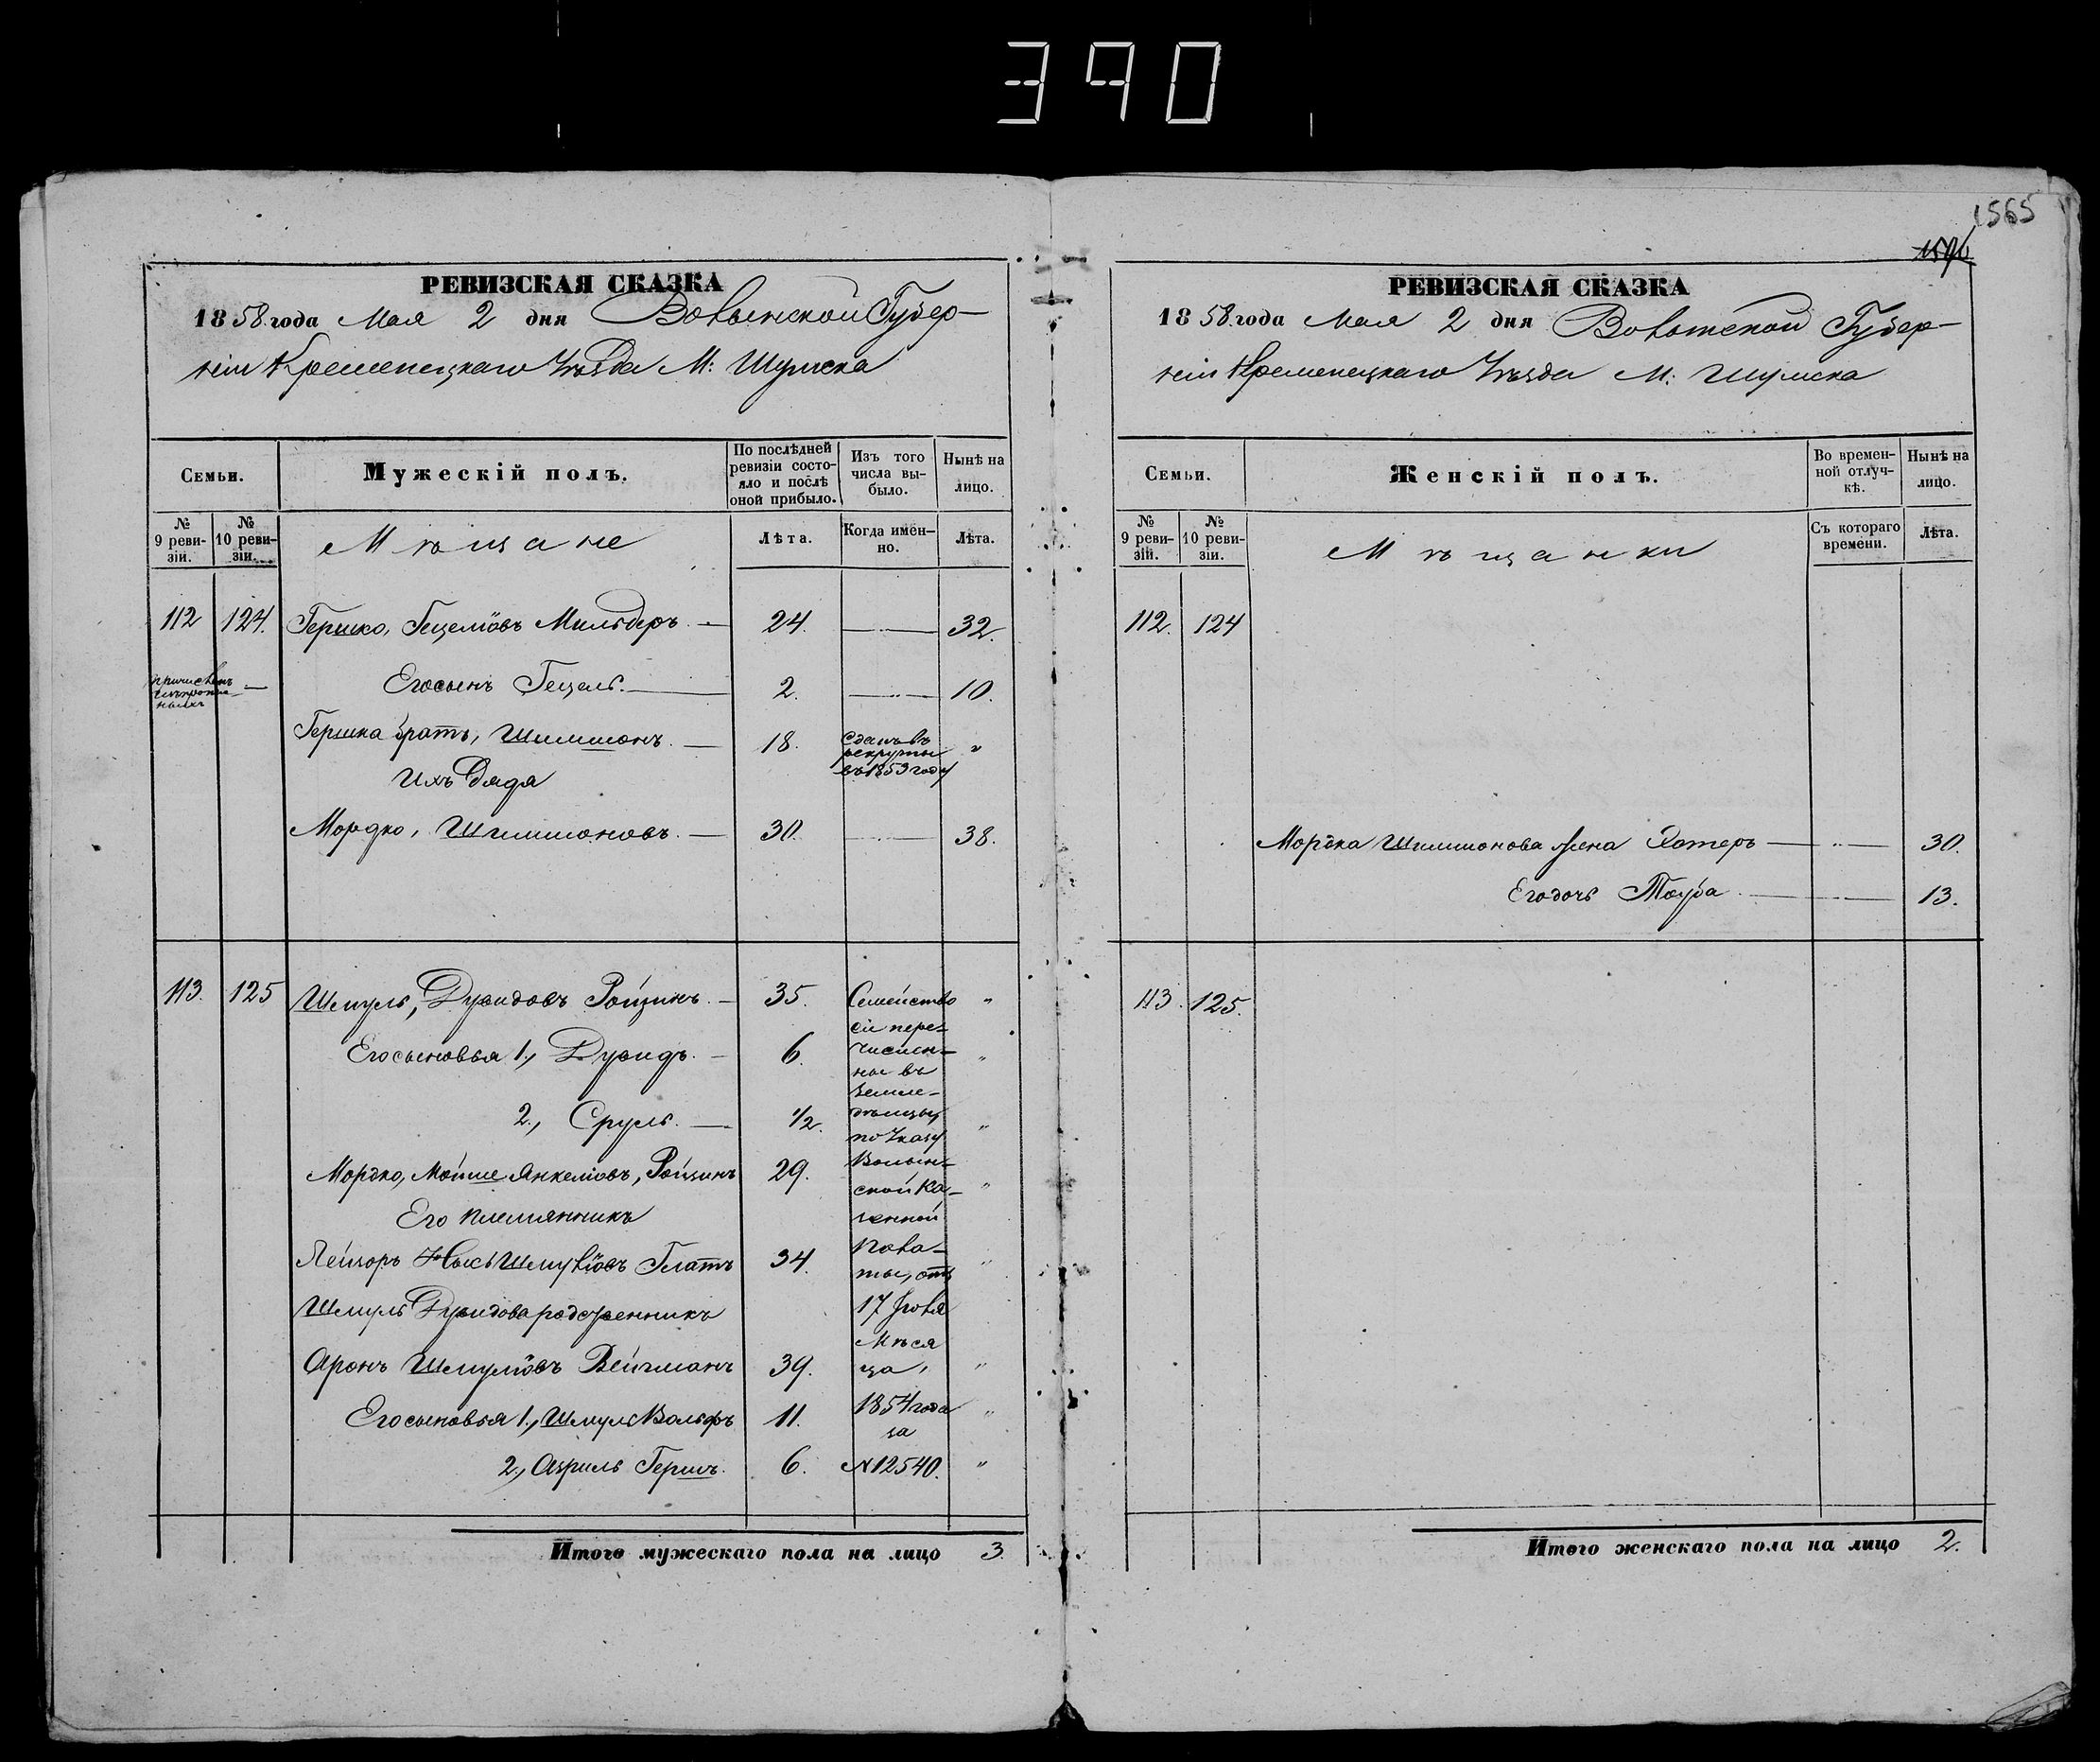 390
1565
РЕВИЗСКАЯ СКАЗКА
1858 года Мая 2 дня Волынской Губер-
ніи Кременецкаго Уѣзда М: Шумска
Семьи.
Мужескій полъ.
По послѣдней ревизіи состояло и послѣ оной прибыло.
Изъ того числа выбыло.
Нынѣ на лицо.
№ 9 ревизій.
№ 10 ревизіи.
Мѣщане
Лѣта.
Когда именно.
Лѣта.
112 124. Гершко, Гецеліовъ Мильдеръ. 24. 32.
Его сынъ Гецель. 2. 10.
Гершка братъ, Шимшонъ. 18. Сданъ въ рекруты въ 1853 году "
Ихъ Дядя
Мордко, Шимшоновъ. 30. 38.
113. 125 Шмуль, Дувидовъ Ройзинъ. 35. "
Его сыновья 1., Дувидъ. 6. "
2., Сруль. 1/2. "
Мордко, Мойше Янкеліовъ, Ройзинъ 29. "
Его племянникъ
Лейзоръ Шмуліовъ Глатъ 34. "
Шмуля Дувидова родственникъ
Аронъ Шмуліовъ Вейгманъ 39. "
Его сыновья 1., Шмуль Вольфъ 11. "
2., Азриль Гершъ. 6. "
Семейство
сіе пере-
числен-
ны въ
земле-
дѣльцы,
по Указу
Волын-
ской Ка-
зенной
Пала-
ты, отъ
17
Мѣся
ца,
1854 года
за
№ 12540.
Итого мужескаго пола на лицо 3.
РЕВИЗСКАЯ СКАЗКА
1858 года Мая 2 дня Волынской Губер-
ніи Кременецкаго Уѣзда М: Шумска
Семьи.
Женскій полъ.
Во временной отлучкѣ.
Нынѣ на лицо.
№ 9 ревизій.
№ 10 ревизіи.
Мѣщанки
Съ котораго времени.
Лѣта.
112. 124
Мордка Шимшонова жена Эстеръ 30.
Его дочь Тауба 13.
113. 125.
Итого женскаго пола на лицо 2.